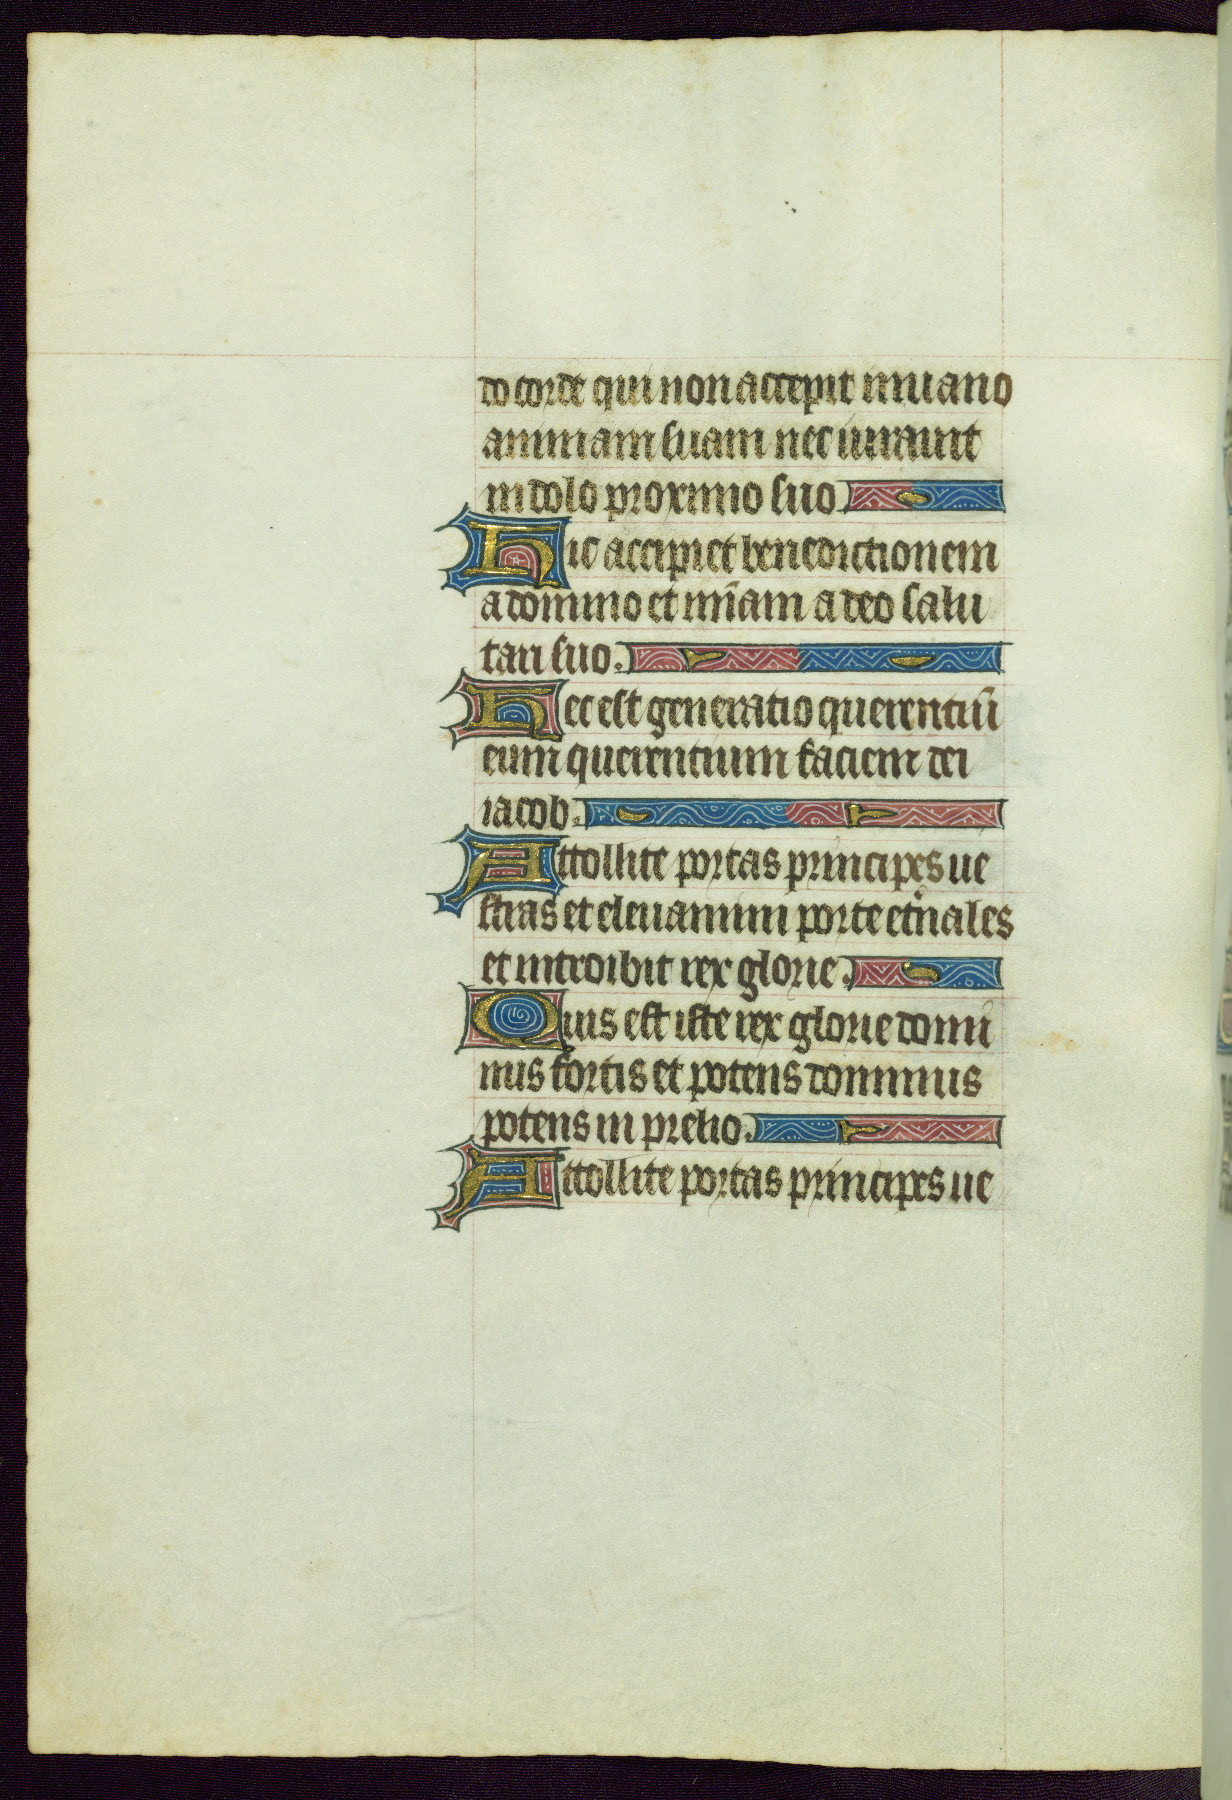 do corde qui non accepit in uano
animam suam nec iurauit
in dolo proximo suo.
Hic accipiet benedictionem
a domino et mīam a deo salu
tari suo.
Hec est generatio querentiū
eum querentium faciem dei
iacob.
Attollite portas principes ue
stras et eleuamini porte et͛nales
et introibit rex glorie.
Quis est iste rex glorie domi
nus fortis et potens dominus
potens in prelio.
Attollite portas principes ue